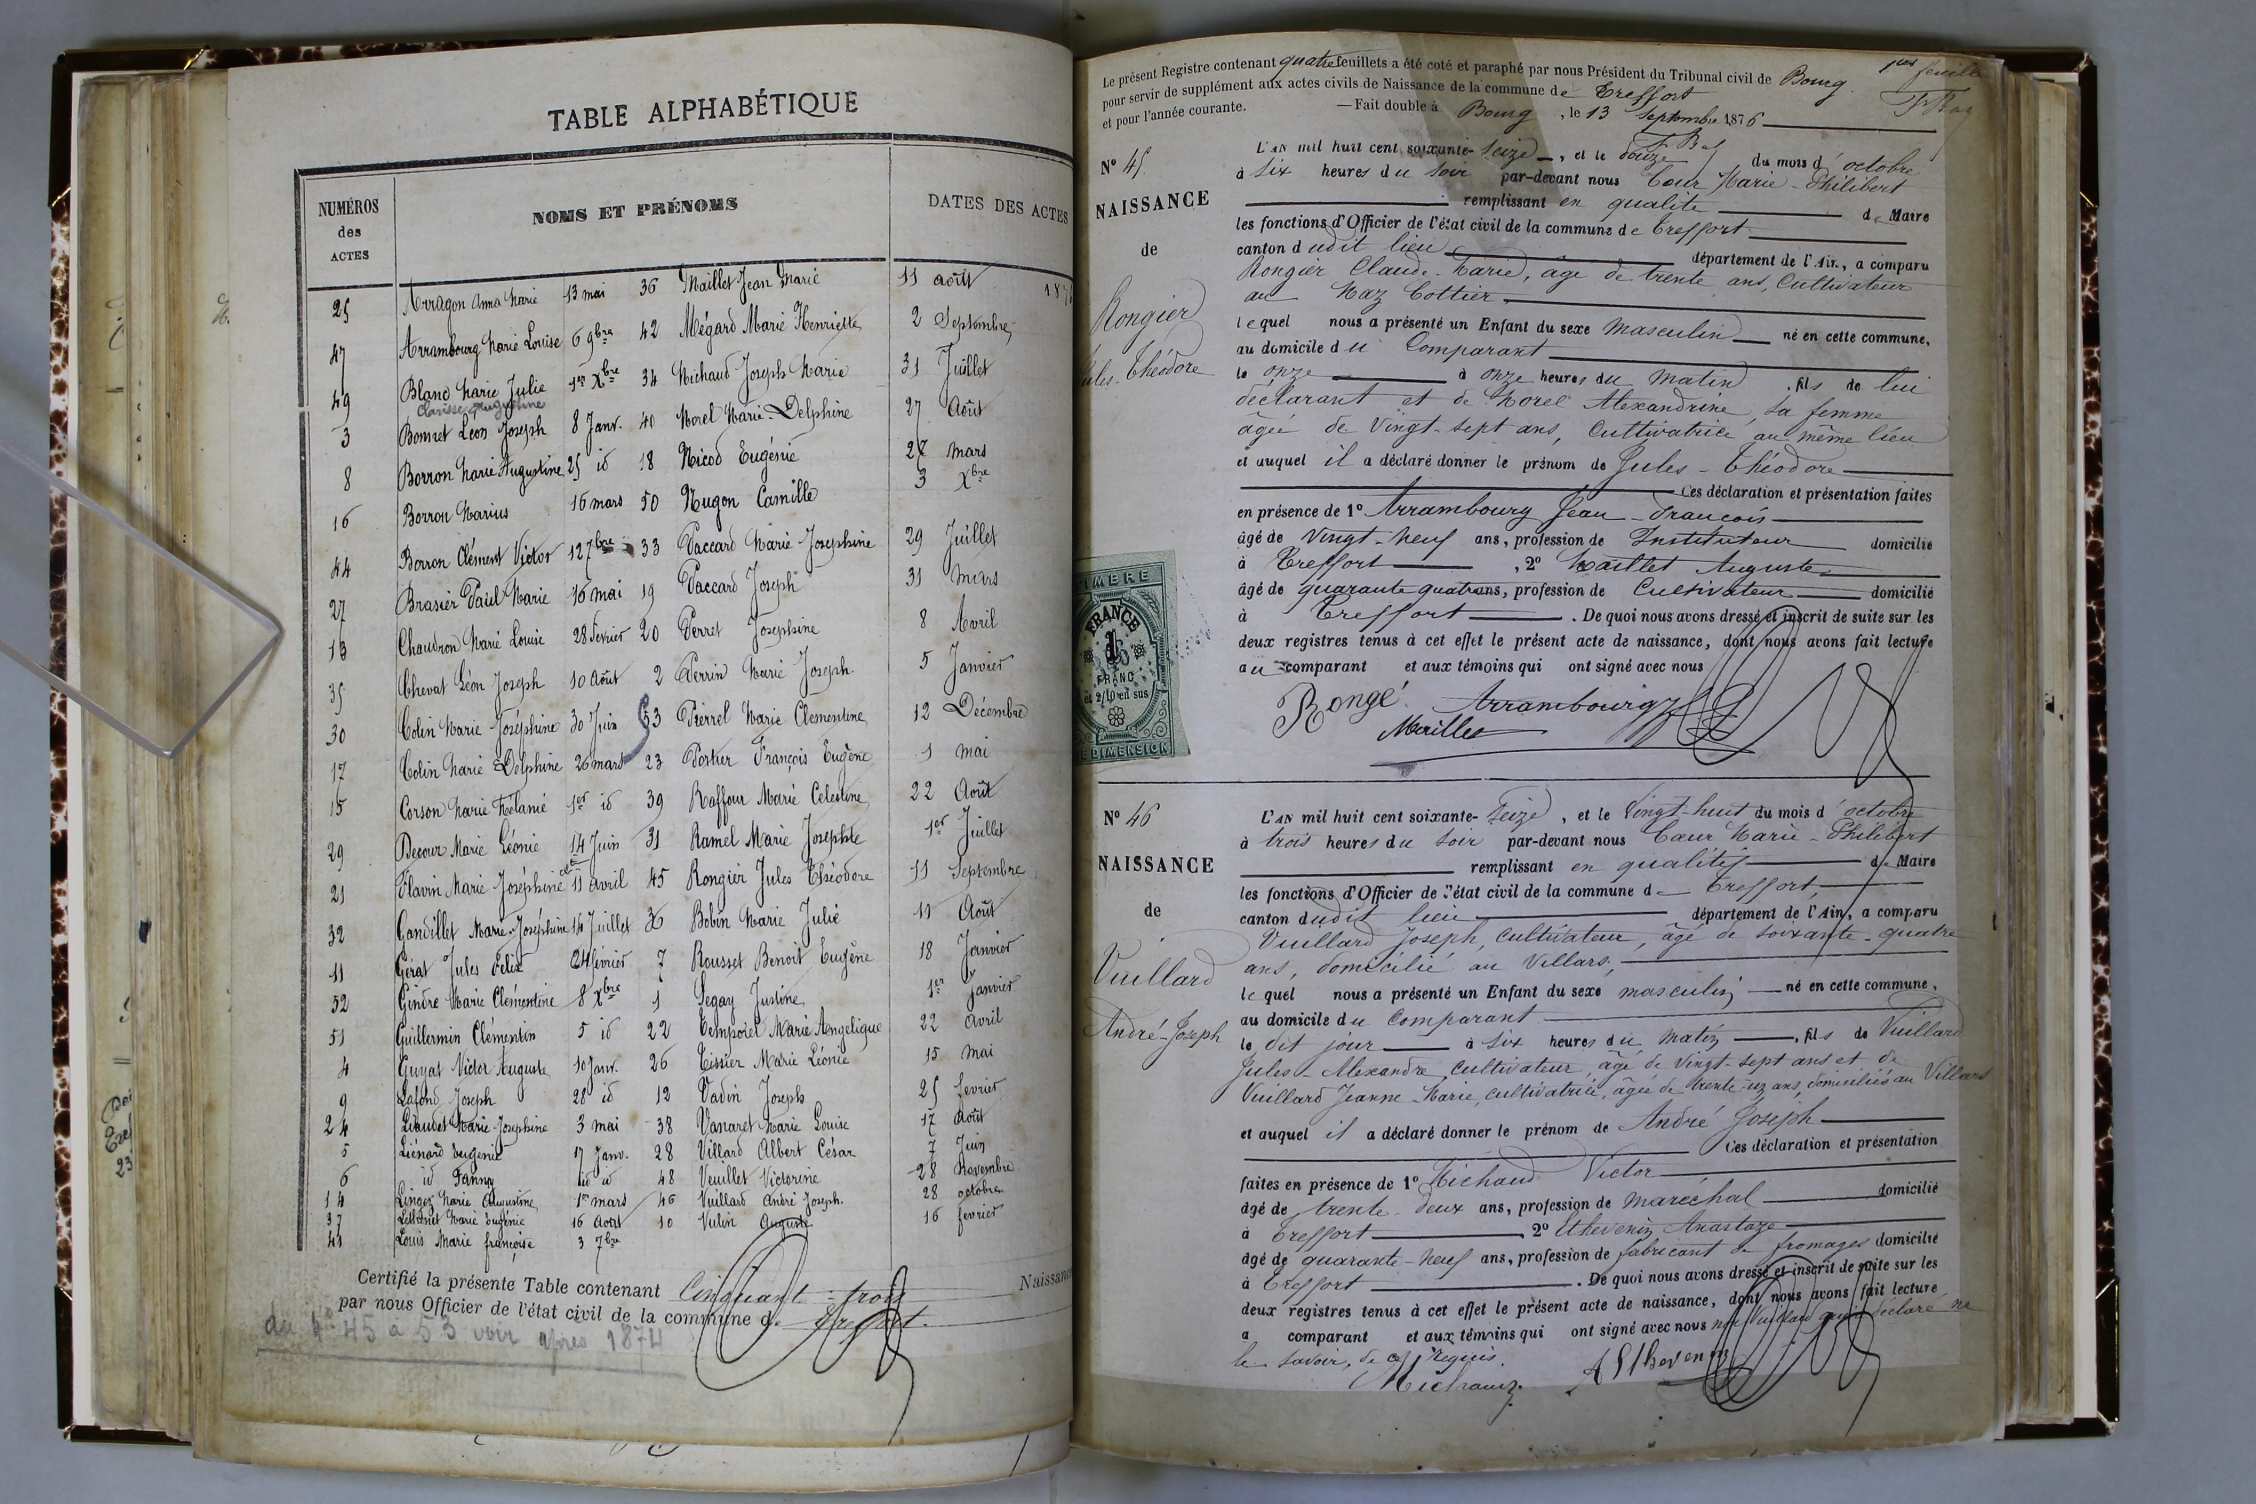 TABLE ALPHABÉTIQUE
NUMÉROS
des
ACTES
NOMS ET PRÉNOMS
DATES DES ACTES
25 Arragon Anna Marie 13 mai 36 Maillet Jean Marie 11 août
47 Arrambourg Marie Louise 6 9bre 42 Mégard Marie Henriette 2 Septembre
49 Blanc Marie Julie 1er Xbre 34 Michaud Joseph Marie 31 Juillet
Clarisse Augustine
3 Bonnet Léon Joseph 8 Janv. 40 Morel Marie-Delphine 27 Août
8 Borron Marie Augustine 25 id 18 Nicod Eugénie 27 mars
16 Borron Marius 16 mars 50 Nugon Camille 3 Xbre
44 Borron Clément Victor 12 7bre 33 Paccard Marie-Josephine 29 Juillet
27 Brasier Paul Marie 16 mai 19 Paccard Joseph 31 Mars
13 Chaudron Marie Louise 28 Février 20 Perret Josephine 8 Avril
35 Chevat Léon Joseph 10 Août 2 Perrin Marie Joseph 5 Janvier
30 Colin Marie Joséphine 30 Juin 53 Pierrel Marie Clementine 12 Décembre
17 Colin Marie Delphine 26 mars 23 Portier François Eugène 1 mai
15 Corson Marie Mélanie 1er id 39 Raffour Marie Celestine 22 Août
29 Decour Marie Léonie 14 Juin 31 Ramel Marie Josephte 1er Juillet
21 Flavin Marie Joséphine 11 avril 45 Rongier Jules Théodore 11 Septembre
32 Gandillet Marie-Joséphine 14 Juillet 36 Bobin Marie Julie 11 Août
11 Gérat Jules Felix 24 février 7 Rousset Benoit Eugène 18 Janvier
52 Gindre Marie Clémentine 8 Xbre 1 Segay Justine 1er Janvier
51 Guillermin Clémentin 5 id 22 Temporel Marie Angelique 22 Avril
4 Guyat Victor Auguste 10 Janv. 26 Tissier Marie Léonie 15 mai
9 Lafond Joseph 28 id 12 Vadin Joseph 25 fevrier
24 Liaudet Marie-Josephine 3 mai 38 Vanaret Marie Louise 17 Août
5 Liénard Eugenie 17 Janv. 28 Villard Albert César 7 Juin
6 id Fanny id id 48 Veuillet Victorine 28 Novembre
14 Marie Augustine 1er mars 46 Vuillard André Joseph. 28 octobre
37 Marie Eugénie 16 Août 10 Vulin Auguste 16 fevrier
41 Louis Marie françoise 3 7bre
Certifié la présente Table contenant Cinquante-trois Naissance
par nous Officier de l'état civil de la commune de Treffort.
du No 45 à 53 voir après 1874
Le présent Registre contenant quatre feuillets a été coté et paraphé par nous Président du Tribunal civil de Bourg
pour servir de supplément aux actes civils de Naissance de la commune de Treffort
et pour l'année courante. — Fait double à Bourg, le 13 Septembre 1876
No 45
NAISSANCE
de
Rongier
Jules-Théodore
L'AN mil huit cent soixante-seize, et le douze du mois d'octobre
à six heures du soir par-devant nous Cœur Marie-Philibert
remplissant en qualité de Maire
les fonctions d'Officier de l'état civil de la commune de Treffort
canton dudit lieu département de l'Ain, a comparu
Rongier Claude-Marie, âgé de trente ans, Cultivateur
au Maz Cottier
lequel nous a présenté un Enfant du sexe masculin né en cette commune,
au domicile du Comparant
le onze à onze heures du matin, fils de lui
déclarant et de Morel Alexandrine, sa femme
âgée de Vingt-sept ans, Cultivatrice au même lieu
et auquel il a déclaré donner le prénom de Jules-Théodore
Ces déclaration et présentation faites
en présence de 1o Arrambourg Jean-François
âgé de Vingt-neuf ans, profession de Instituteur domicilié
à Treffort, 2o Maillet Auguste
âgé de quarante quatre ans, profession de Cultivateur domicilié
à Treffort. De quoi nous avons dressé et inscrit de suite sur les
deux registres tenus à cet effet le présent acte de naissance, dont nous avons fait lecture
au comparant et aux témoins qui ont signé avec nous
Rongé. Arrambourg
Maillet
TIMBRE
FRANCE
1
FRANC
et 2/10 en sus
DE DIMENSION
No 46
NAISSANCE
de
Vuillard
André-Joseph
L'AN mil huit cent soixante-seize, et le Vingt-huit du mois d'octobre
à trois heures du soir par-devant nous Cœur Marie-Philibert
remplissant en qualité de Maire
les fonctions d'Officier de l'état civil de la commune de Treffort,
canton dudit lieu département de l'Ain, a comparu
Vuillard Joseph, Cultivateur, âgé de soixante-quatre
ans, domicilié au Villars,
lequel nous a présenté un Enfant du sexe masculin né en cette commune,
au domicile du Comparant
le dit jour à six heures du matin, fils de Vuillard
Jules-Alexandre, cultivateur, âgé de vingt-sept ans et de
Vuillard Jeanne-Marie, cultivatrice, âgée de trente-un ans, domiciliés au Villars
et auquel il a déclaré donner le prénom de André Joseph
Ces déclaration et présentation
faites en présence de 1o Michaud Victor
âgé de trente-deux ans, profession de maréchal domicilié
à Treffort, 2o Ethevenin Anastaze
âgé de quarante-neuf ans, profession de fabricant de fromages domicilié
à Treffort. De quoi nous avons dressé et inscrit de suite sur les
deux registres tenus à cet effet le présent acte de naissance, dont nous avons fait lecture
a comparant et aux témoins qui ont signé avec nous non Vuillard qui a déclaré ne
le savoir, de ce requis.
Michaud